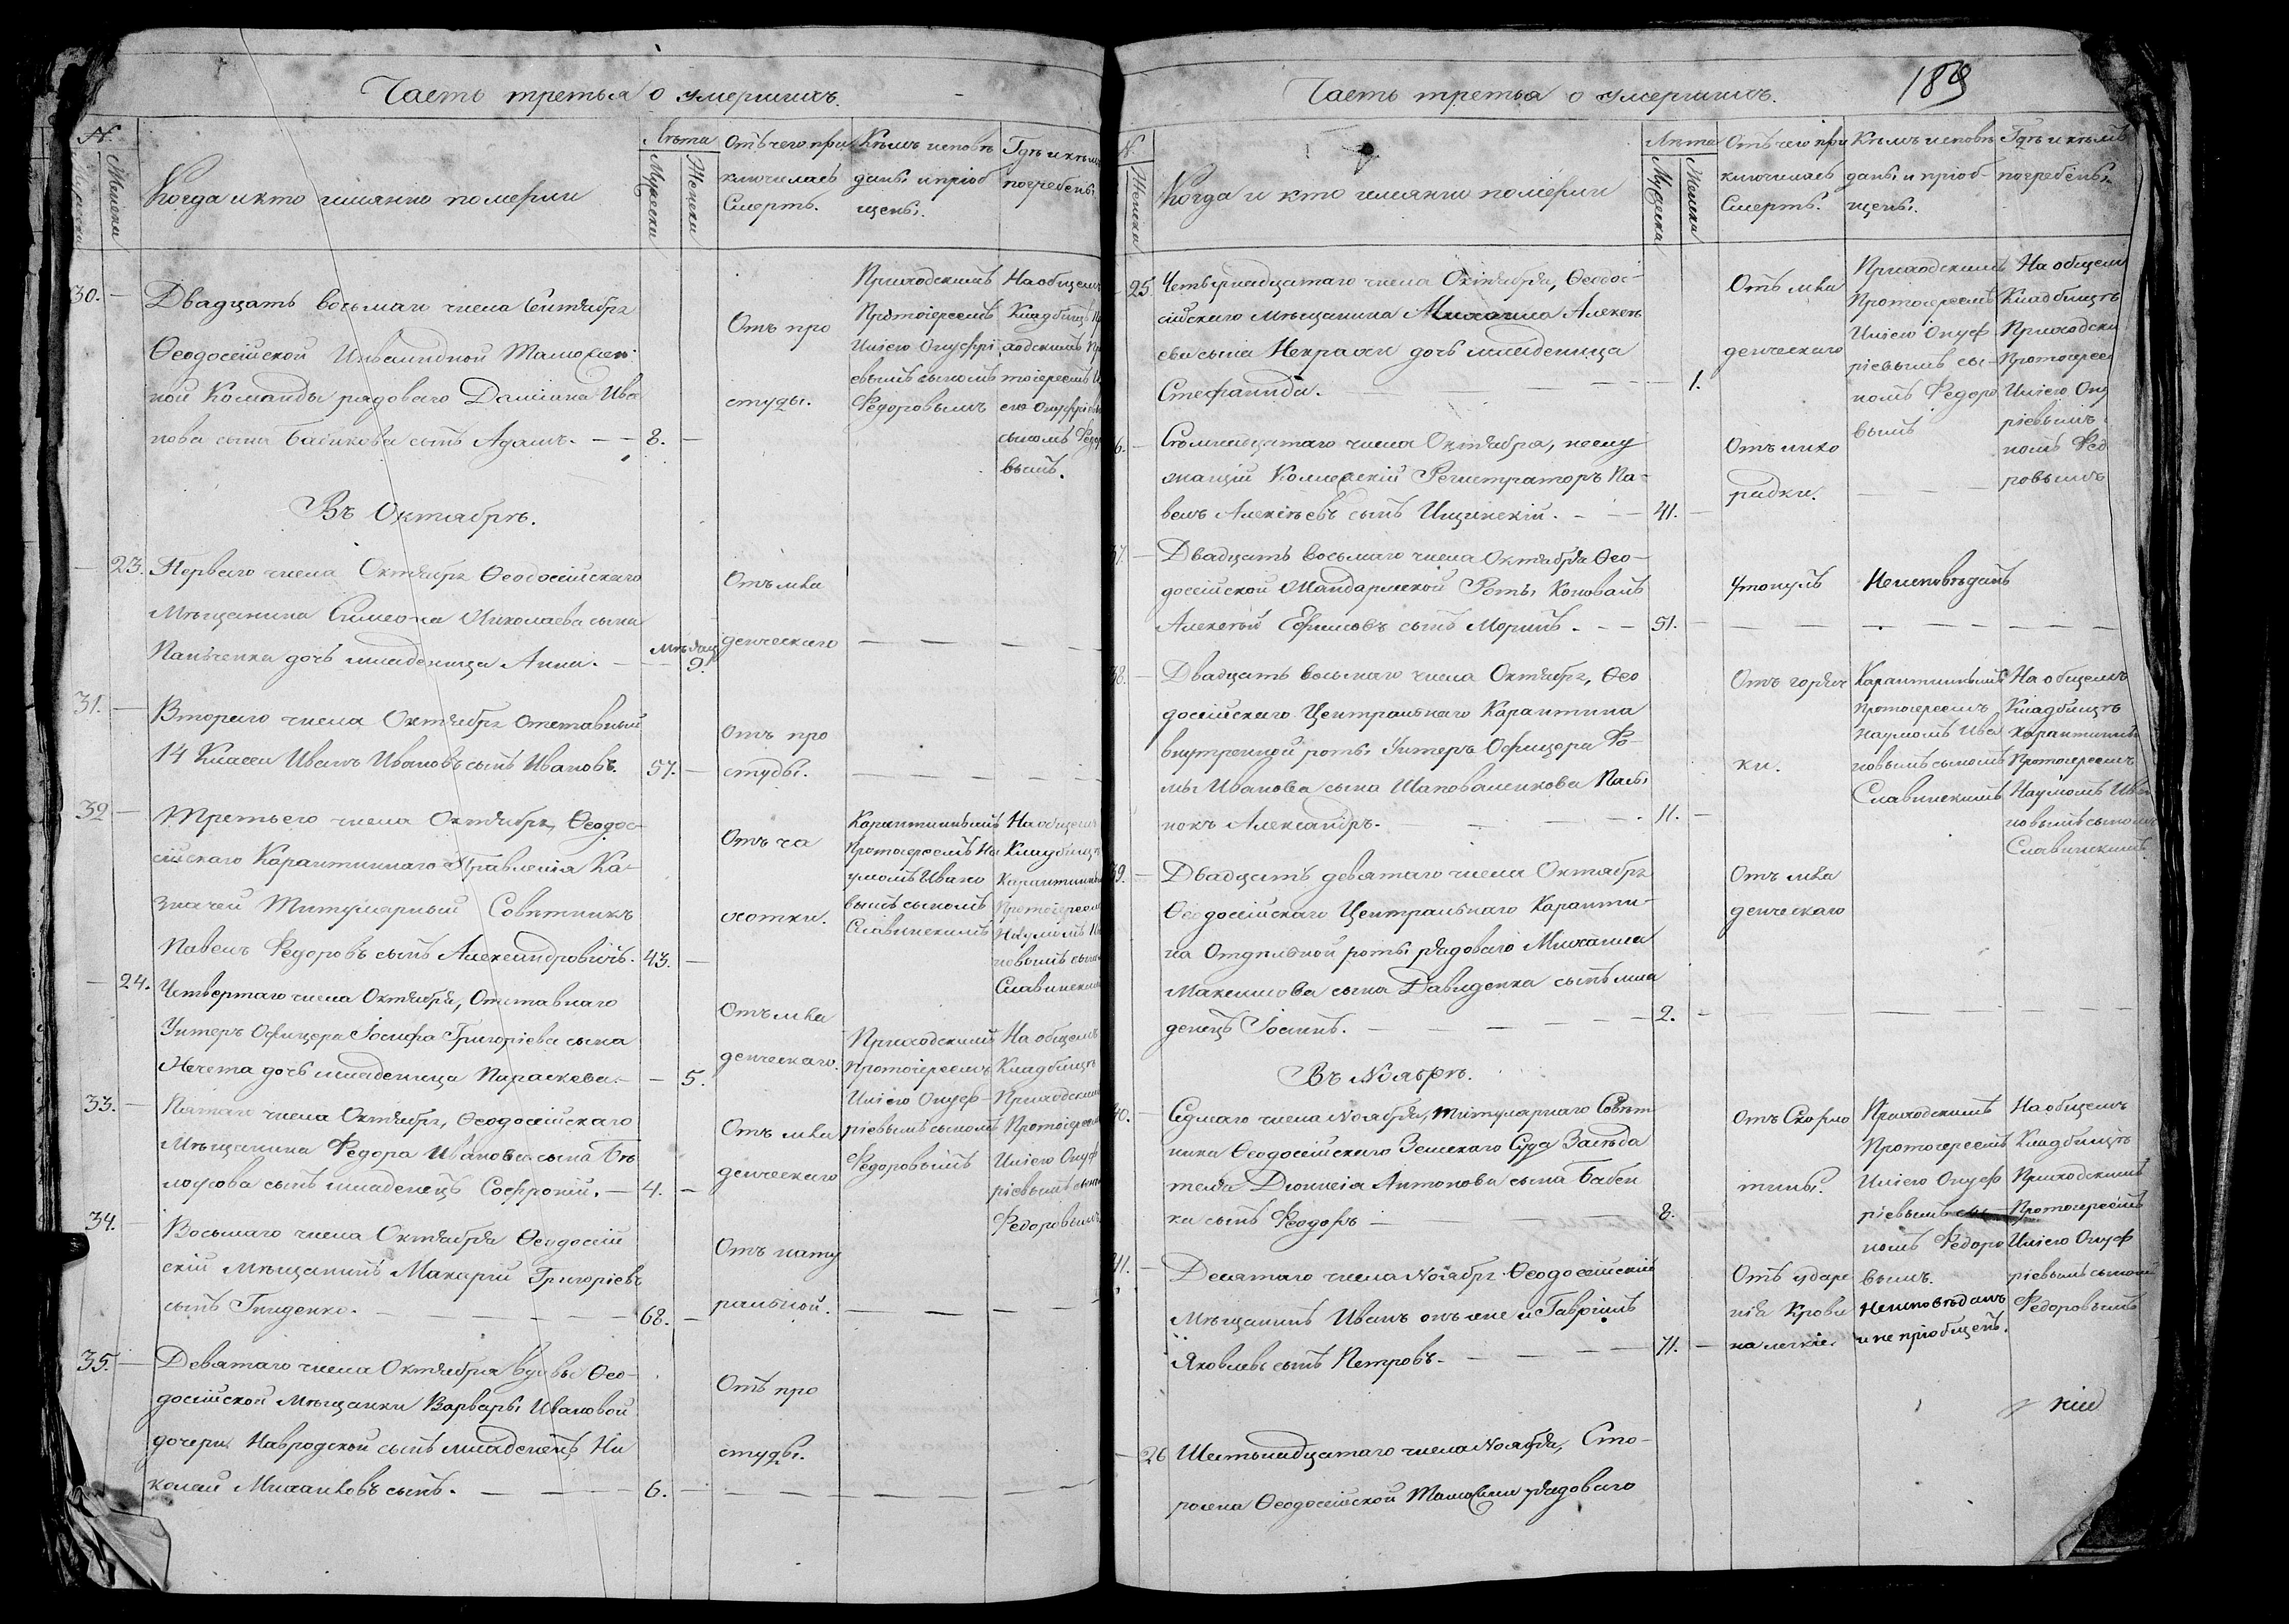 Часть третья о умершихъ.
№.
Мужеска
Женска
Когда и кто имянно померли
Лѣта
Мужеска
Женска
Отъ чего при
ключилась
Смерть.
Кѣмъ исповѣ
даны и пріоб
щены.
Гдѣ и кѣмъ
погребены
30.
Двадцать восьмаго числа Сентября
Ѳеодосійской Инвалидной Таможен
ной Команды рядоваго Даміана Ива
нова сына Бабикова сынъ Адамъ. 8.
Отъ про
студы.
Приходскимъ
Протоіереемъ
Иліею Онуфрі
евымъ сыномъ
Федоровымъ
На общемъ
Кладбищѣ
ходскимъ
тоіереемъ
ею Онуфріев
сыномъ Федо
вымъ.
Въ Октябрѣ.
23. Перваго числа Октября Ѳеодосійскаго
Мѣщанина Симеона Николаева сына
Панченка дочь младеница Анна. мѣсяц 9.
Отъ мла
денческаго
31.
Втораго числа Октября отставный
14 Класса Иванъ Ивановъ сынъ Ивановъ. 57.
Отъ про
студы.
32
Третьего числа Октября, Ѳеодос-
сійскаго Карантиннаго Правленія Ка-
значей Титулярный Совѣтникъ
Павелъ Федоровъ сынъ Александровичъ. 43.
Отъ ча
хотки.
Карантиннымъ
Протоіереемъ На
умомъ Ивано
вымъ сыномъ
Славинскимъ
На общемъ
Кладбищѣ
Карантинны
Протоіерее
Наумомъ
новымъ сын
Славинским
24. Четвертаго числа Октября, Отставнаго
Унтеръ Офицера Іосифа Григоріева сына
Нечета дочь младеница Параскева. 5.
Отъ мла
денческаго.
Приходскимъ
Протоіереемъ
Иліею Онуф-
ріевымъ сыномъ
Федоровымъ
На общемъ
Кладбищѣ
Приходским
Протоіерее
Иліею Онуф
ріевымъ сын
Федоровымъ
33.
Пятаго числа Октября, Ѳеодосійскаго
Мѣщанина Федора Иванова сына Бѣ
лоусова сынъ младенецъ Софроній. 4.
Отъ мла
денческаго
34.
Восьмаго числа Октября Ѳеодосій
скій Мѣщанинъ Макарій Григоріевъ
сынъ Гниденко. 68.
Отъ нату
ральной.
35.
Девятаго числа Октября Вдовы Ѳео-
досійской Мѣщанки Варвары Ивановой
дочери Навродской сынъ младенецъ Ни
колай Михайловъ сынъ. 6.
Отъ про
студы.
Часть третья о умершихъ.
189
№.
Женска
Когда и кто имянно померли
Лѣта
Мужеска
Женска
Отъ чего при
ключилась
Смерть.
Кѣмъ исповѣ
даны и пріоб-
щены.
Гдѣ и кѣмъ
погребены.
25. Четырнадцатаго числа Октября, Ѳеодос-
сійскаго Мѣщанина Михаила Алексѣ
ева сына Некрасы дочь младеница
Стефанида. 1.
Отъ мла
денческаго
Приходскимъ
Протоіереемъ
Иліею Онуф
ріевымъ сы-
номъ Федоро
вымъ
На общем
Кладбищѣ
Приходски
Протоіерее
Иліею Ону
ріевымъ
номъ Фед
ровымъ
6.
Семнадцатаго числа Октября, неслу
жащій Коллежскій Регистраторъ Па-
велъ Алексѣевъ сынъ Ищинскій. 41.
Отъ лихо
радки.
37.
Двадцать восьмаго числа Октября Ѳео-
досійской Жандармской Роты Коновалъ
Алексѣй Ефимовъ сынъ Моринъ. 51.
Утонулъ
Неисповѣданъ
38.
Двадцать восьмаго числа Октября, Ѳео
досійскаго Центральнаго Карантина
внутренней роты Унтеръ Офицера Ѳо-
мы Иванова сына Шаповаленкова Паси
нокъ Александръ. 11.
Отъ горяч
ки.
Карантиннымъ
Протоіереемъ
Наумомъ Ива
новымъ сыномъ
Славинскимъ
На общемъ
Кладбищѣ
Карантинны
Протоіереемъ
Наумомъ Ива
новымъ сыномъ
Славинскимъ.
39.
Двадцать девятаго числа Октября
Ѳеодосійскаго Центральнаго Каранти-
на Отдѣльной роты рядоваго Михаила
Максимова сына Давиденка сынъ мла
денецъ Іоаннъ. 2.
Отъ мла
денческаго
Въ Ноябрѣ.
40.
Седмаго числа Ноября, Титулярнаго Совѣт
ника Ѳеодосійскаго Земскаго Суда Засѣда
теля Діонисія Антонова сына Бабен
ка сынъ Феодоръ 8.
Отъ Скарла
тины.
Приходскимъ
Протоіереемъ
Иліею Онуф
ріевымъ сы-
номъ Федоро
вымъ.
На общемъ
Кладбищѣ
Приходскимъ
Протоіереемъ
Иліею Онуф
ріевымъ сыном
Федоровымъ
41.
Десятаго числа Ноября Ѳеодосійскій
Мѣщанинъ Иванъ онъ же и Гавріилъ
Яковлевъ сынъ Петровъ. 71.
Отъ ударе
нія Крови
на легкіе.
Неисповѣданъ
и не пріобщенъ.
26 Шестьнадцатаго числа Ноября, Сто-
рожа Ѳеодосійской Таможни рядоваго